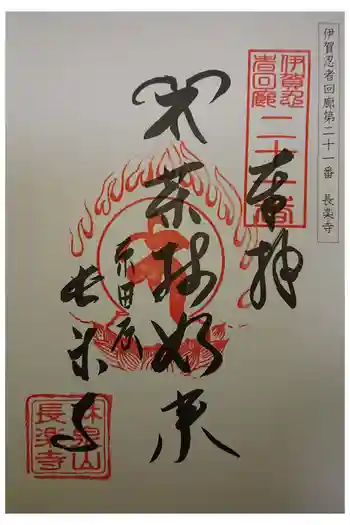 伊賀忍者回廊第二十一番 長楽寺
伊賀忍
者回廊
二十一番
奉拝
薬師如来
市田原
長楽寺
山
長楽寺